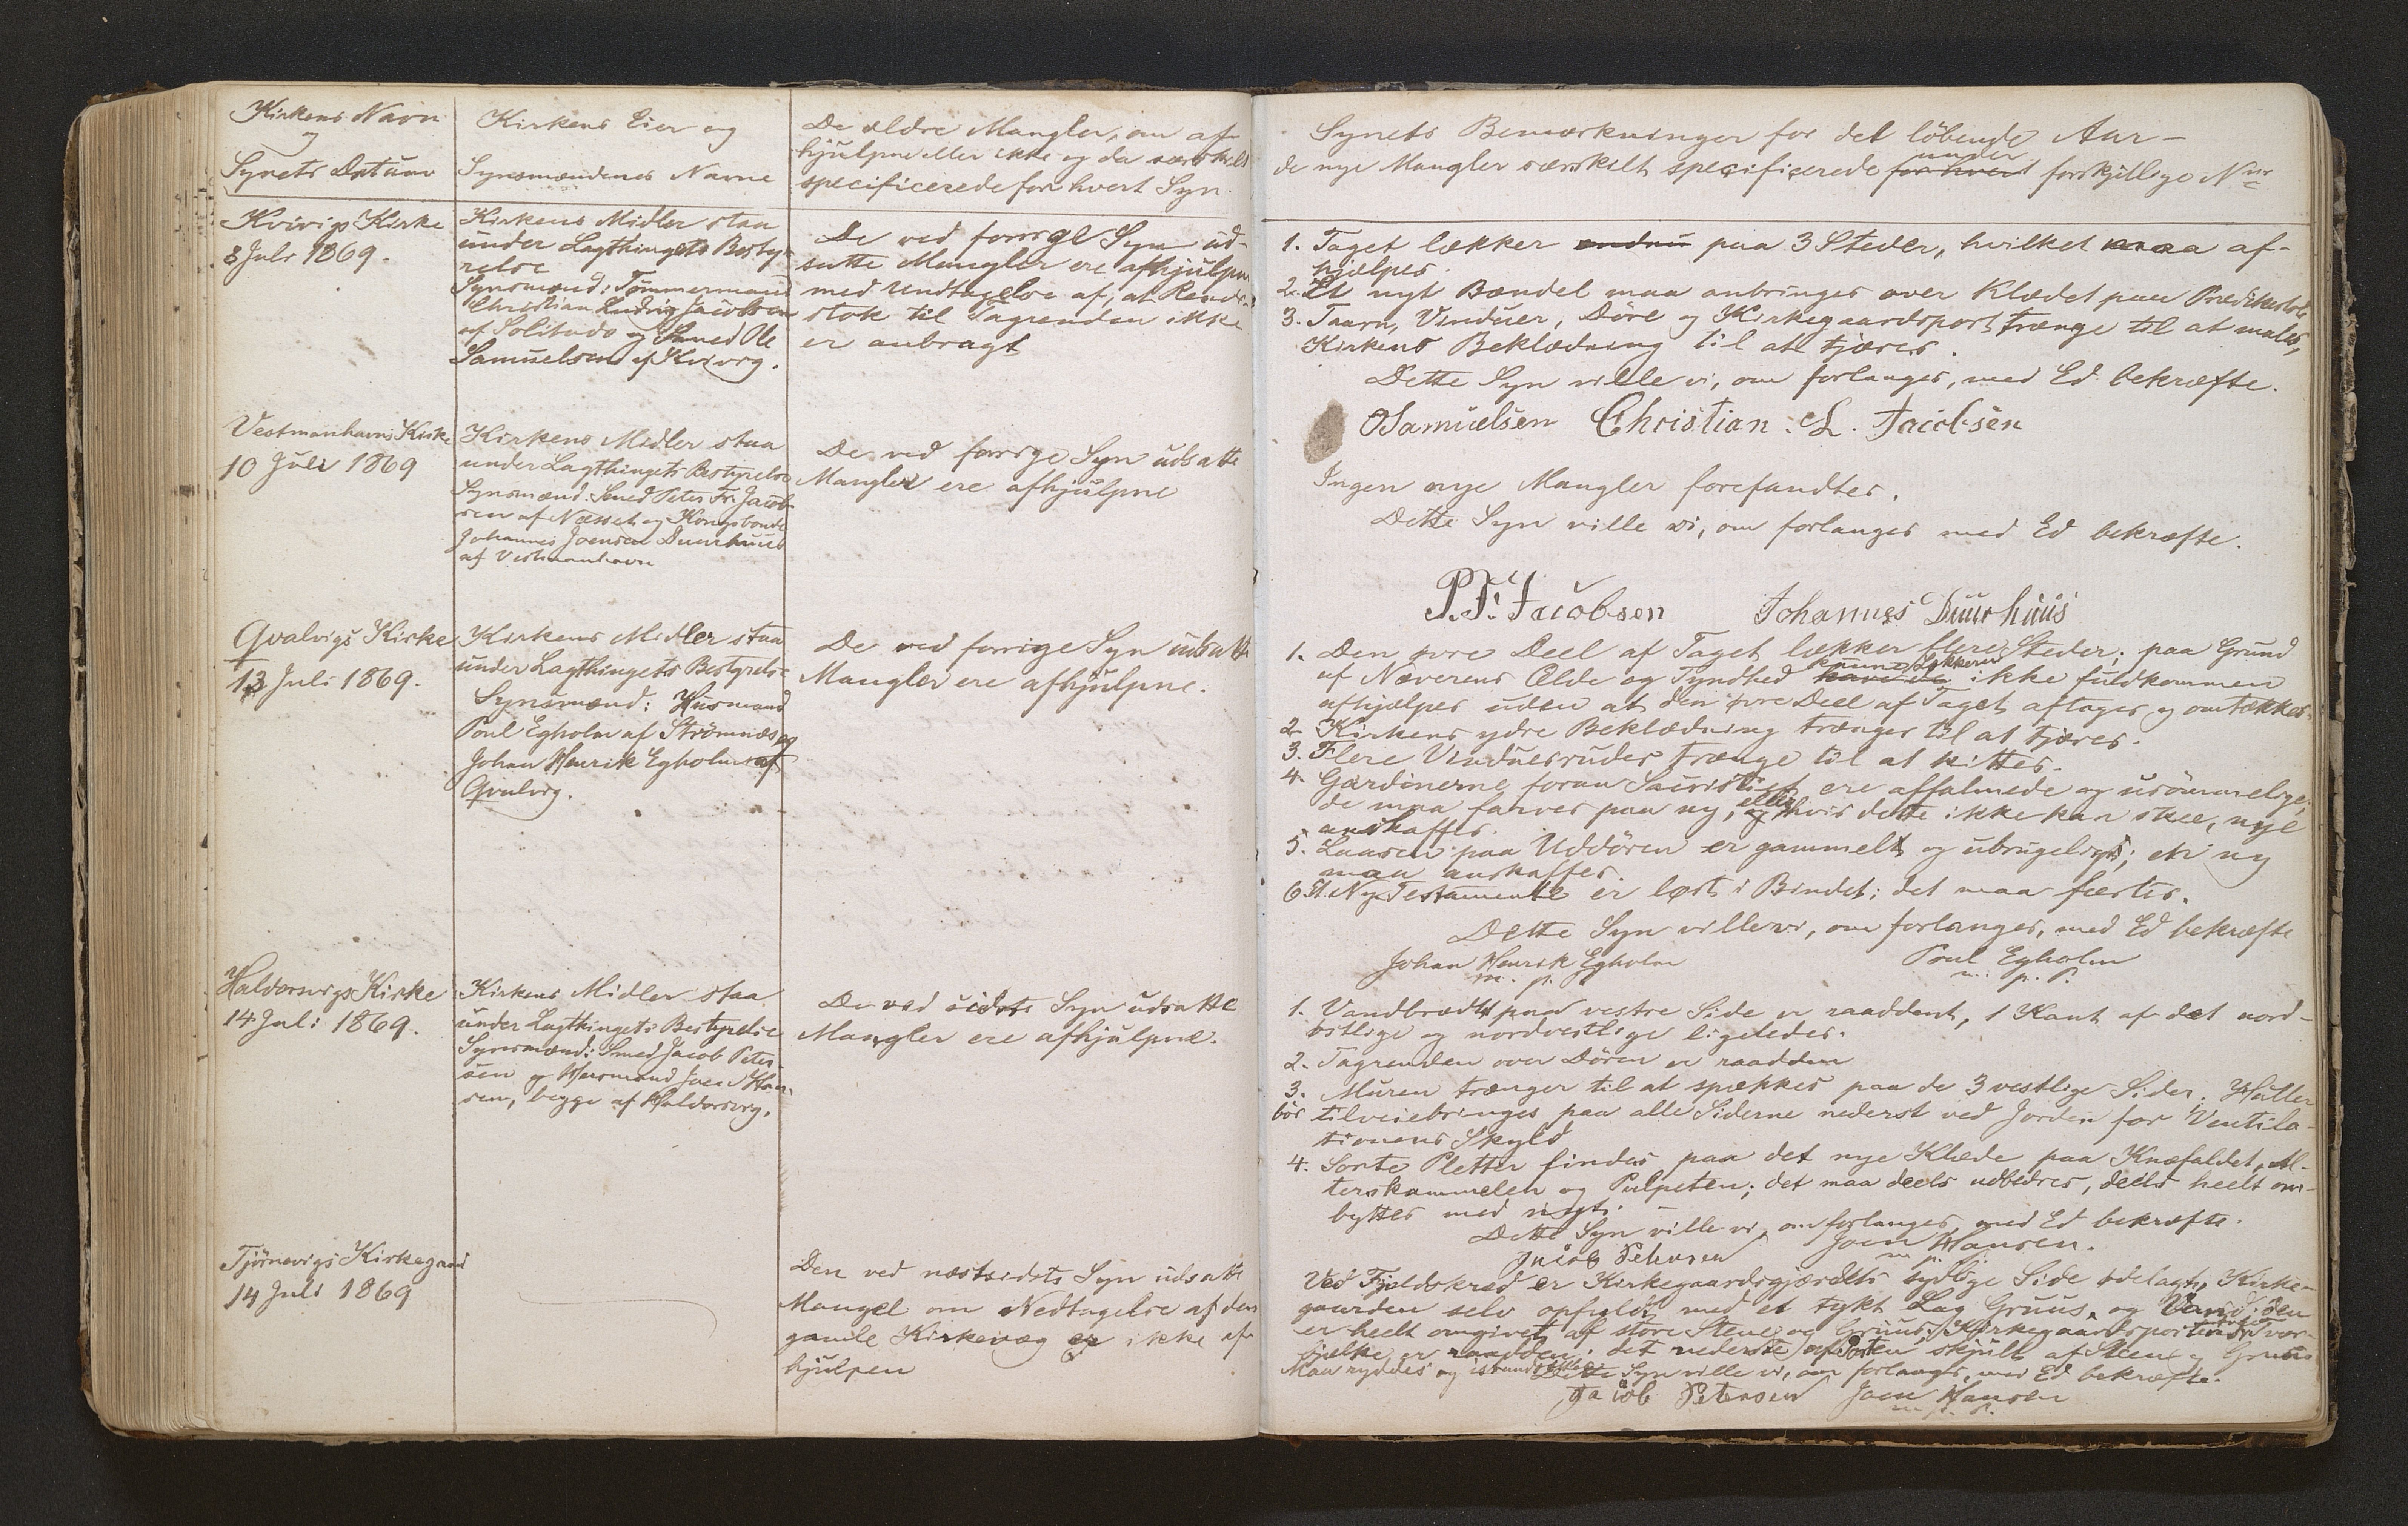 Kirkens Navn
og
Synets Datum
Kirkens Eier og
Synsmændenes Navne
De ældre Mangler, om af-
hjulpne eller ikke og da særskilt
specificerede for hvert Syn.
Kvivigs Kirke
8 Juli 1869.
Kirkens Midler staa
under Lagthingets Besty-
relse
Synsmænd: Tømmermand
Christian Ludvig Jacobsen
af Solitude og Smed Ole
Samuelsen af Kvivig.
De ved forrige Syn ud-
satte Mangler ere afhjulpne
med Undtagelse af, at
stok til Tagrenden ikke
er anbragt
Vestmanhavns Kirke
10 Juli 1869
Kirkens Midler staa
under Lagthingets Bestyrelse
Synsmænd: Smed Peter Fr. Jacob-
sen af Næsset og Kongsbonde
Johannes Joensen Duurhuus
af Vestmanhavn
De ved forrige Syn udsatte
Mangler ere afhjulpne
Qvalvigs Kirke
13 Juli 1869.
Kirkens Midler staa
under Lagthingets Bestyrelse
Synsmænd: Husmand
Poul Egholm af Strömnæs og
Johan Henrik Egholm af
Qvalvig.
De ved forrige Syn udsatte
Mangler ere afhjulpne.
Haldorsvigs Kirke
14 Juli 1869.
Kirkens Midler staa
under Lagthingets Bestyrelse
Synsmænd: Smed Jacob Peter-
sen og Husmand Joen Han-
sen, begge af Haldorsvig.
De ved sidste Syn udsatte
Mangler ere afhjulpne.
Tjörnevigs Kirkegaard
14 Juli 1869
Den ved næstsidste Syn udsatte
Mangel om Nedtagelse af den
gamle Kirkevæg er ikke af-
hjulpen
Synets Bemærkninger for det löbende Aar-
de nye Mangler særskilt specificerede for hvert under forskjellige Nrr
1. Taget lækker endnu paa 3 Steder, hvilket maa af-
hjælpes.
2. Et nyt Bændel maa anbringes over Klædet paa Prædikestolen
3. Taarn, Vinduer, Döre og Kirkegaardsport trænge til at males,
Kirkens Beklædning til at tjæres.
Dette Syn ville vi, om forlanges, med Ed bekræfte.
OSamuelsen Christian. L. Jacobsen
Ingen nye Mangler forefandtes.
Dette Syn ville vi, om forlanges med Ed bekræfte.
P. Fr. Jacobsen Johannes Duurhuus
1. Den övre Deel af Taget lækker flere Steder; paa Grund
af Næverens Ælde og Tyndhed kunne Lækkerne ikke fuldkommen
afhjælpes uden at den övre Deel af Taget aftages og omtækkes.
2. Kirkens ydre Beklædning trænger til at tjæres.
3. Flere Vinduesruder trænge til at kittes.
4. Gardinerne foran Sacristiet ere affalmede og usömmelige;
de maa farves paa ny, eller hvis dette ikke kan skee, nye
anskaffes.
5. Laasen paa Uddören er gammelt og ubrugeligt; en ny
maa anskaffes.
6 Et Ny Testamente er löst i Bindet; det maa fæstes.
Dette Syn ville vi, om forlanges, med Ed bekræfte
Johan Henrik Egholm Poul Egholm
m. p. m. p. P.
1. Vandbrædt paa vestre Side er raaddent, 1 Kant af det nord-
östlige og nordvestlige ligeledes.
2. Tagrenden over Dören er raadden
3. Muren trænger til at spækkes paa de 3 vestlige Sider. Huller
bör tilveiebringes paa alle Siderne nederst ved Jorden for Ventila-
tionens Skyld
4. Sorte Pletter findes paa det nye Klæde paa Knæfaldet, Al-
terskammelen og Pulpeten; det maa deels udbedres, deels heelt om-
byttes med nyt.
Dette Syn ville vi, om forlanges, med Ed bekræfte.
Jacob Petersen Joen Hansen.
m. p.
Ved Fjeldskred er Kirkegaardsgjærdets sydlige Side ödelagt, Kirke-
gaarden selv opfyldt med et tykt Lag Gruus, og Vand; den
er heelt omgivet af store Stene og Gruus; Kirkegaardsportens Tvær-
bjælke er raadden; det nederste af Porten skjult af Stene og Gruus
Maa ryddes og istandsættes. Dette Syn ville vi, om forlanges, med Ed bekræfte.
Jacob Petersen Joen Hansen
m. p. P.